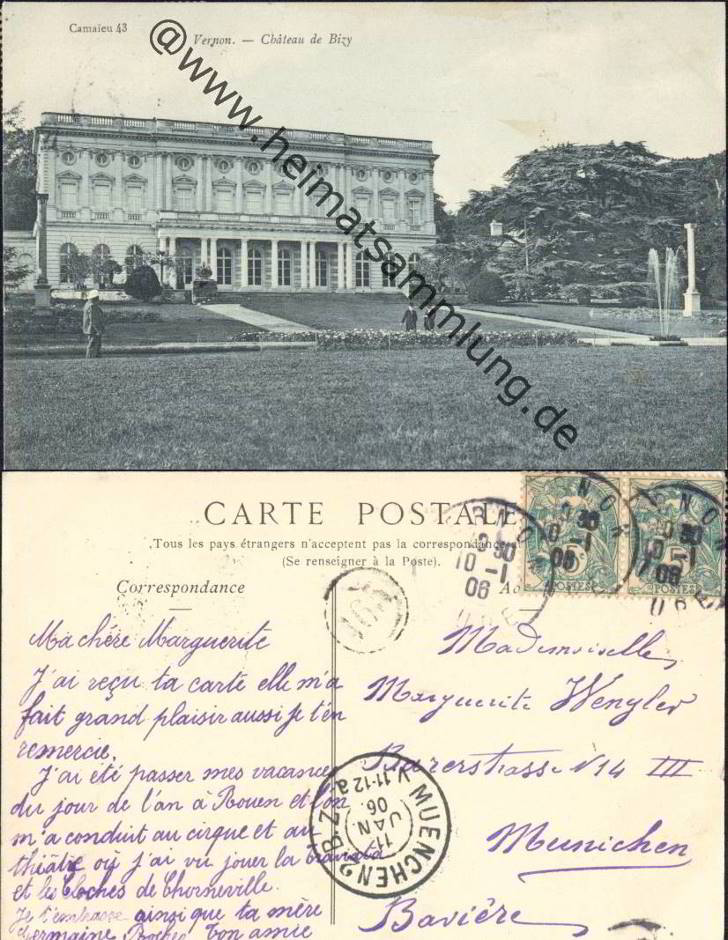 Camaïeu 43
Vernon. — Château de Bizy
@www.heimatsammlung.de
CARTE POSTALE
Tous les pays étrangers n'acceptent pas la correspondance
(Se renseigner à la Poste).
Correspondance
POSTES
POSTES
2 30
10 -1
06
103
Ma chére Marguerite
J'ai reçu ta carte elle m'a
fait grand plaisir aussi je t'en
remercie.
J'ai été passer mes vacances
du jour de l'an à Rouen et l'on
m'a conduit au cirque et au
théâtre ou j'ai vu jouer la
et les Cloches de Chorneville.
Je t'embrasse ainsi que ta mère
Germaine Ton amie
Mademoiselle
Marguerite Wengler
Barerstrasse N 14 III
Munichen
Bavière
MUENCHEN 2 B.Z.
11. JAN. 06
V. 11-12 a